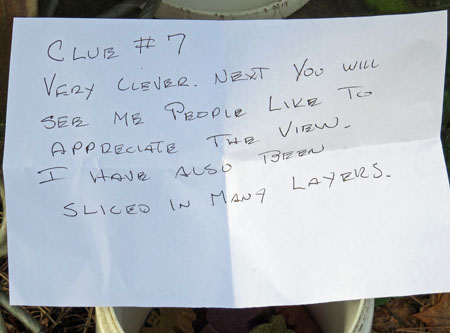 CLUE # 7
VERY CLEVER. NEXT YOU WILL
SEE ME PEOPLE LIKE TO
APPRECIATE THE VIEW.
I HAVE ALSO BEEN
SLICED IN MANY LAYERS.